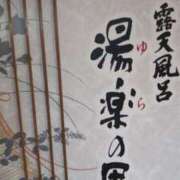 露天風呂
湯楽の
ゆら